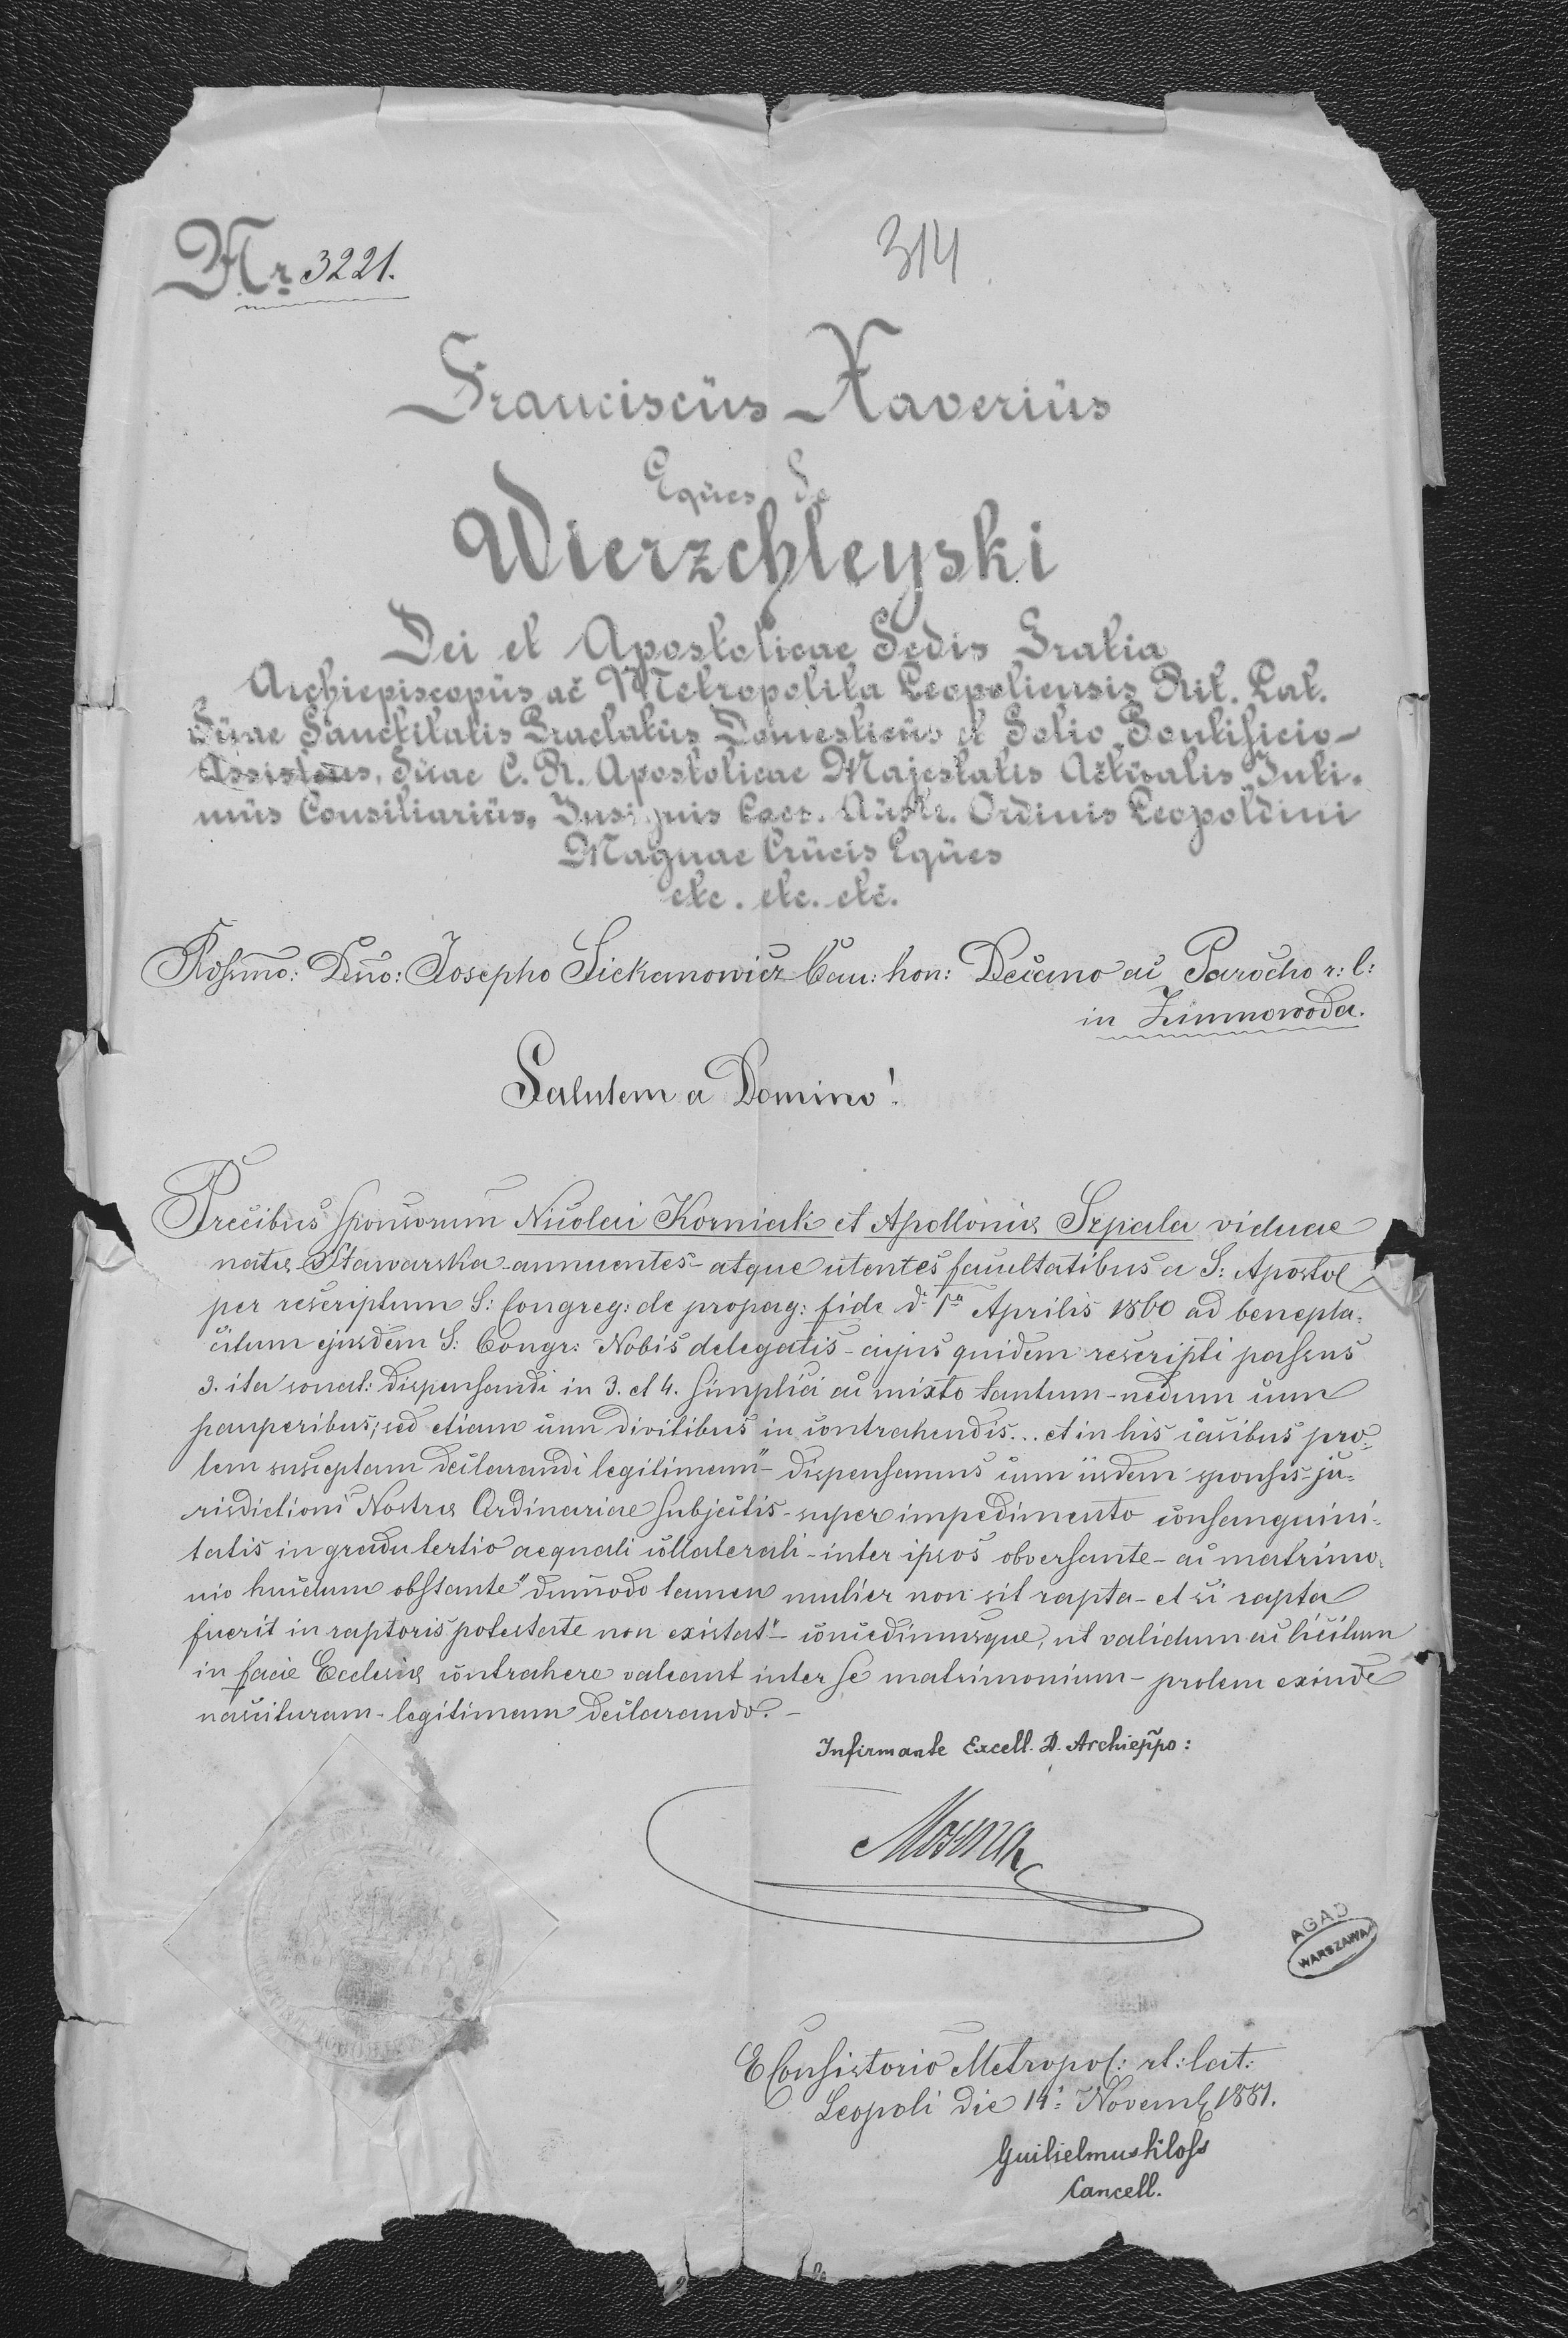 Nr 3221.
314
Franciscus Xaverius
Eques de
Wierzchleyski
Dei et Apostolicae Sedis Gratia
Archiepiscopus ac Metropolita Leopoliensis Rit. Lat.
Suae Sanctitatis Praelatus Domesticus et Solio Pontificio-
Assistens, Suae C. R. Apostolicae Majestatis Actualis Inti-
mus Consiliarius, Insignis Caes. Austr. Ordinis Leopoldini
Magnae Crucis Eques
etc. etc. etc.
Rdssmo: Dno: Josepho Sickanowicz Can: hon: Decano ac Parocho r: l:
in Zimnowoda.
Salutem a Domino!
Precibus sponsorum Nicolai Korniak et Apolloniae Szpala viduae
natae Stawarska - annuentes - atque utentes facultatibus a S: Apostol
per rescriptum S: Congreg: de propag: fide d. 1a Aprilis 1860 ad benepla-
citum ejusdem S: Congr: Nobis delegatis - cujus quidem rescripti passus
3. ita sonat: dispensandi in 3. et 4. simplici ac mixto tantum - nedum cum
pauperibus; sed etiam cum divitibus in contrahendis... et in his casibus pro-
lem susceptam declarandi legitimam" - dispensamus cum iisdem sponsis - ju-
risdictioni Nostrae Ordinariae subjectis - super impedimento consanguini-
tatis in gradu tertio aequali collaterali - inter ipsos obversante - ac matrimo-
nio hucdum obstante "dummodo tamen mulier non sit rapta - et si rapta
fuerit in raptoris potestate non existat" - concedimusque, ut validum ac licitum
in facie Ecclesiae contrahere valeant inter se matrimonium - prolem exinde
nascituram - legitimam declarando. -
Infirmante Excell. D. Archieppo:
AGAD
WARSZAWA
E Consistorio Metropol: rt: lat:
Leopoli die 14: Novemb 1881.
Guilielmus
Cancell.